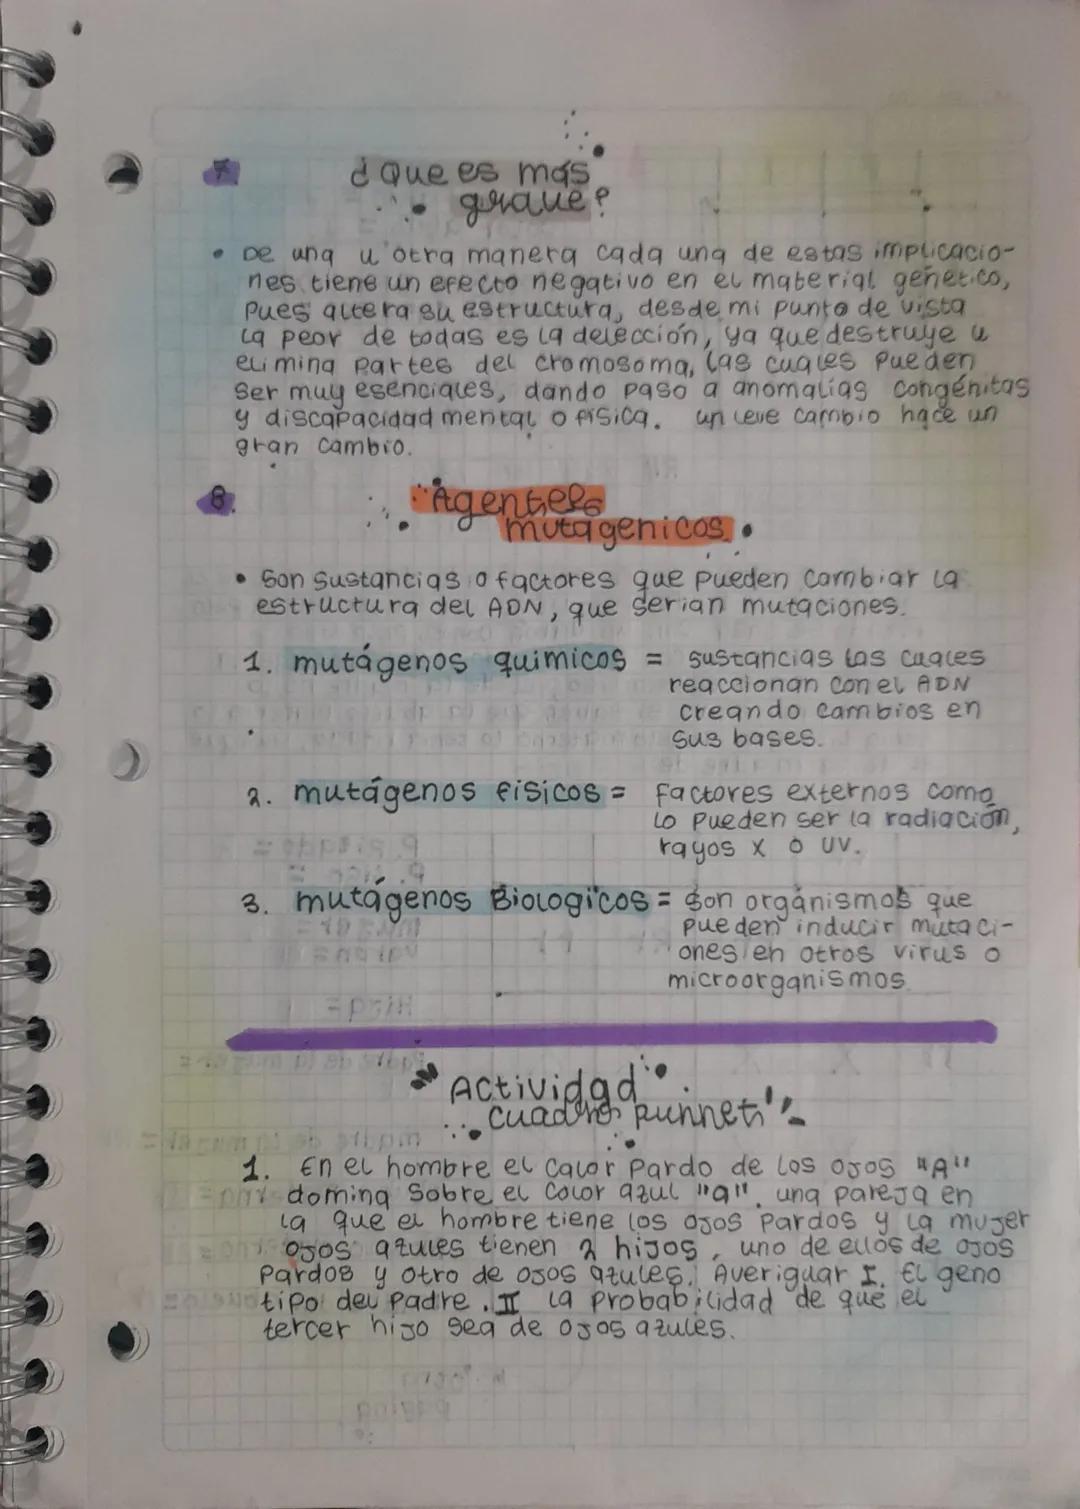 7
¿Que es más
grave?
• De una u otra manera cada una de estas implicacio-
nes tiene un efecto negativo en el material genetico,
Pues altera su estructura, desde mi punto de vista
La peor de todas es la delección, ya que destruye u
elimina partes del cromosoma, las cuales pueden
ser muy esenciales, dando paso a anomalías congénitas
y discapacidad mental o fisica. un leve cambio hace un
gran cambio.
8.
Agentes
mutagenicos
• Son sustancias o factores que pueden cambiar la
estructura del ADN, que serian mutaciones.
1. mutágenos quimicos = sustancias las cuales
reaccionan con el ADN
creando cambios en
sus bases.
2. mutágenos fisicos = Factores externos como
lo pueden ser la radiación,
rayos x o UV.
3. mutágenos Biologicos = Son organismos que
pueden inducir mutaci-
ones en otros virus o
microorganismos.
Actividad
cuadro punnet
1. En el hombre el calor pardo de los ojos "A"
domina sobre el color azul "a". una pareja en
la que el hombre tiene los ojos pardos y la mujer
ojos azules tienen 2 hijos, uno de ellos de ojos
pardos y otro de ojos azules. Averiguar I. El geno
tipo del padre. II la probabilidad de que el
tercer hijo sea de ojos azules.